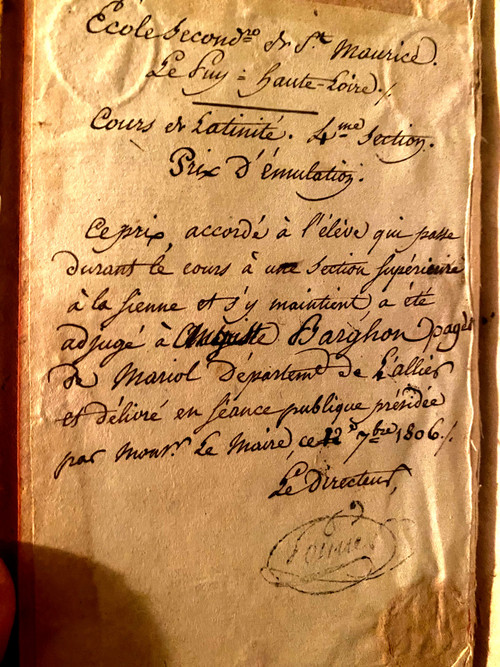 École Secondre de St. Maurice.
Le Puy = Haute-Loire./.
Cours de Latinité. 4me Section.
Prix D'émulation.
Ce prix, accordé à l'élève qui passe
durant le cours à une Section supérieure
à la sienne et s'y maintient, a été
adjugé à Auguste Barghon
de Mariol Départemt. de L'allier
et délivré en séance publique présidée
par monsr. Le Maire, ce 7bre 1806./.
Le Directeur,